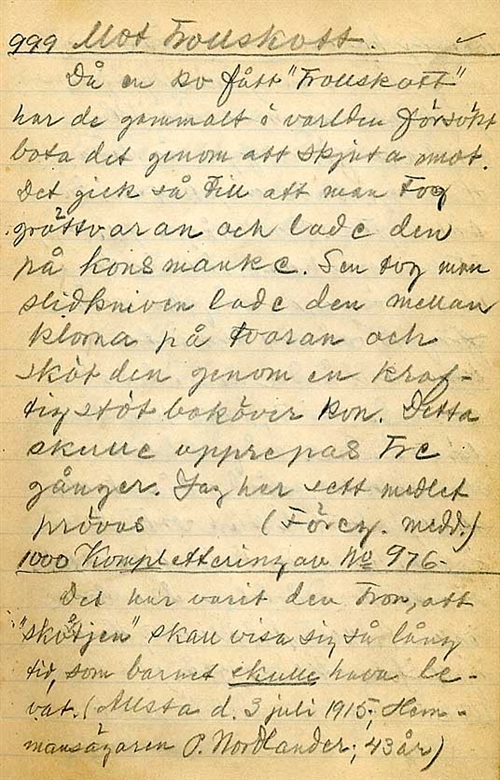 999 Mot Trollskott.
Då en ko fått "Trollskott"
har de gammalt i världen försökt
bota det genom att skjuta emot.
Det gick så till att man tog
gröttvaran och lade den
på kons manke. Sen tog man
slidkniven lade den mellan
klorna på tvaran och
sköt den genom en kraf-
tig stöt baköver kon. Detta
skulle upprepas tre
gånger. Jag har sett medlet
prövas (Föreg. medd.)
1000 Komplettering av No 976.
Det har varit den tron, att
skall visa sig så lång
tid, som barnet skulle hava le-
vat. (Allsta d. 3 juli 1915; Hem-
mansägaren P. Nordlander; 43 år)